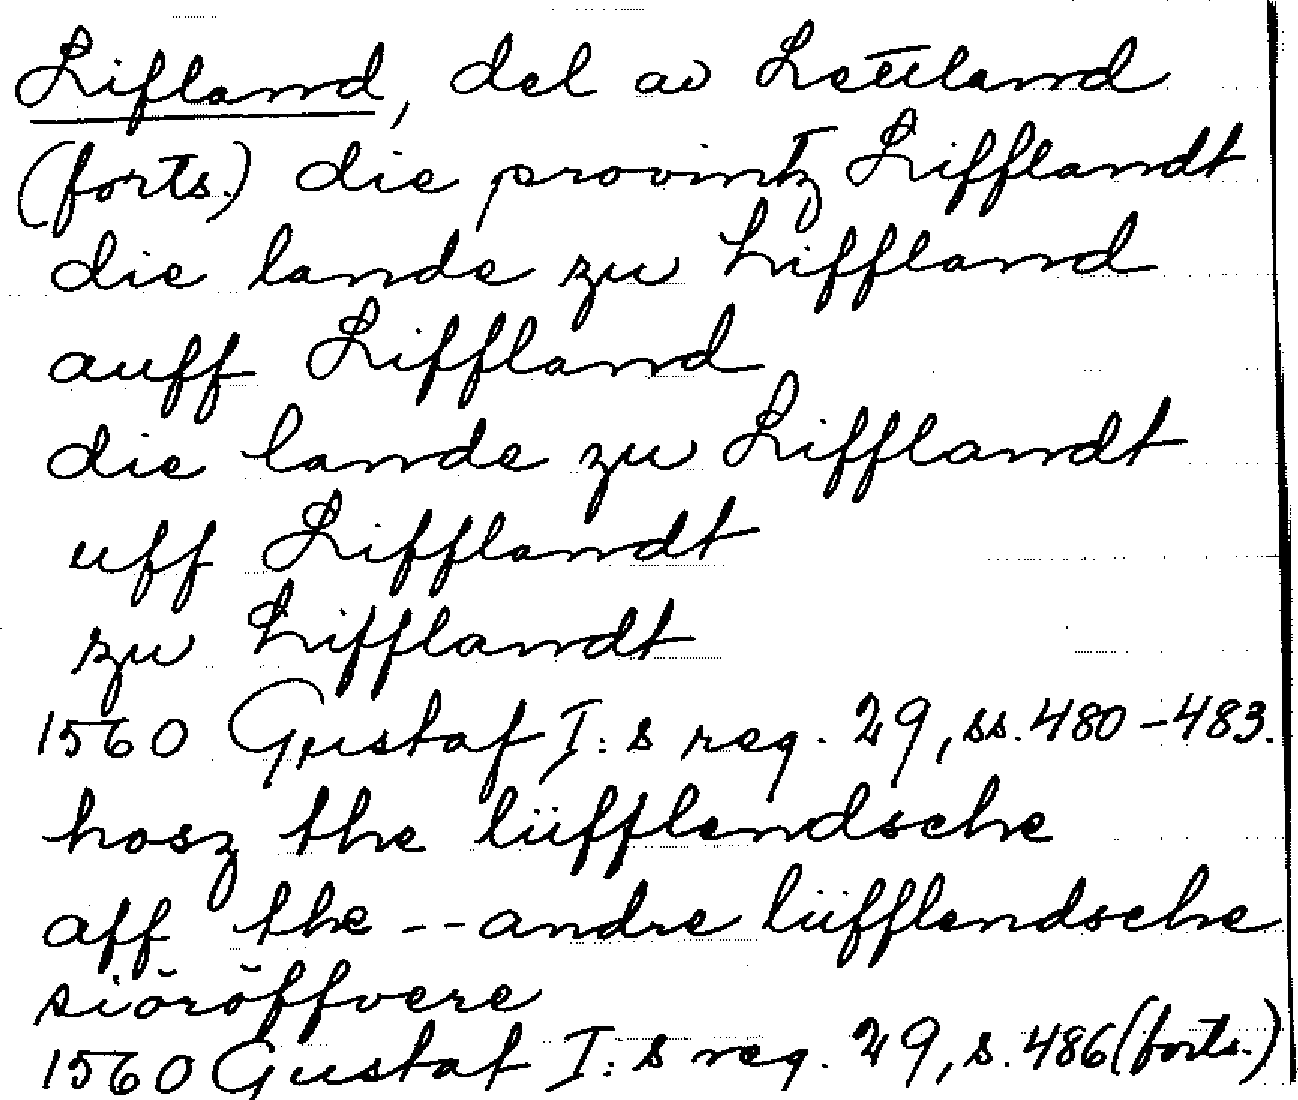 Lifland, del av Lettland
(forts.) die provintz Lifflandt
die lande zu Liffland
auff Liffland
die lande zu Lifflandt
uff Lifflandt
zu Lifflandt
1560 Gustaf I:s reg. 29, ss. 480-483.
hosz the lüfflendsche
aff the -- andre lüfflendsche
siöröffvere
1560 Gustaf I:s reg. 29, s. 486 (forts.)